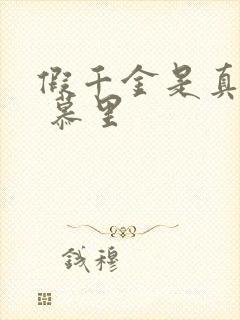 假千金是真
慕里
钱穆